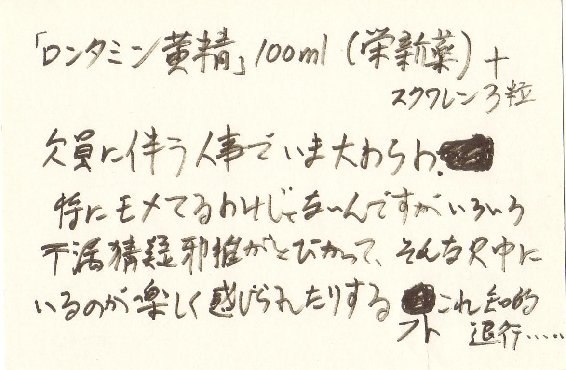 「ロンタミン黄精」100ml（栄新薬）＋
スクワレン3粒
欠員に伴う人事でいま大わらわ.
特にモメてるわけじゃないんですがいろいろ
干渉猜疑邪推がとびかって、そんな只中に
いるのが楽しく感じられたりする これ知的
退行……